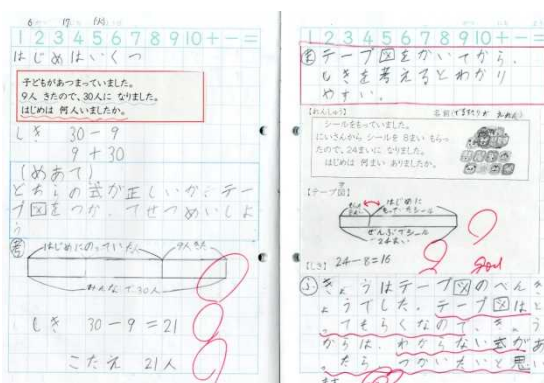 6 17
1 2 3 4 5 6 7 8 9 10 + − =
はじめはいくつ
子どもがあつまっていました。
9人 きたので、30人に なりました。
はじめは 何人いましたか。
しき 30−9
9+30
(めあて)
どちらの式が正しいか、テー
プ図をつかってせつめいしよ
う
考
はじめにのっていた人 9人きた
みんなで30人
しき 30−9=21
こたえ 21人
1 2 3 4 5 6 7 8 9 10 + − =
テープ図をかいてから、
しきを考えるとわかり
やすい。
【れんしゅう】 名前
シールをもっていました。
にいさんから シールを 8まい もらっ
たので、24まいに なりました。
はじめは 何まい ありましたか。
【テープ図】
はじめに
もっていたシール
ぜんぶでシール
24まい
【しき】 24−8=16
good
ふ きょうはテープ図のべんき
ょうでした。テープ図はと
ってもらくなので、きょう
からは、わからない式があ
ったら、つかいたいと思い
ます